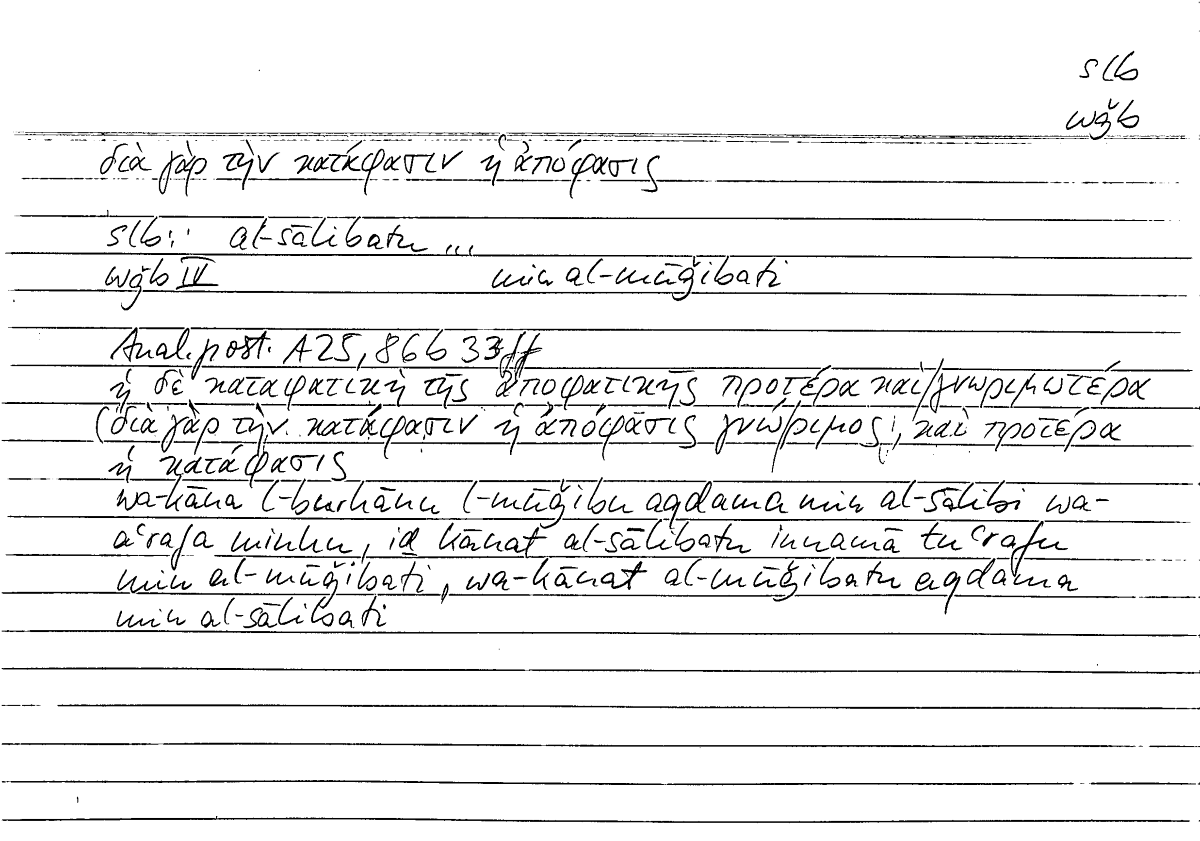 slb
wǧb
διὰ γὰρ τὴν κατάφασιν ἡ ἀπόφασις
slb: al-sālibatu ...
wǧb IV min al-mūǧibati
Anal. post. A25, 86b 33ff
ἡ δὲ καταφατικὴ τῆς ἀποφατικῆς προτέρα καὶ γνωριμωτέρα
(διὰ γὰρ τὴν κατάφασιν ἡ ἀπόφασις γνώριμος, καὶ προτέρα
ἡ κατάφασις
wa-kāna l-burhānu l-mūǧibu aqdama min al-sālibi wa-
aʿrafa minhu, iḏ kānat al-sālibatu innamā tuʿrafu
min al-mūǧibati, wa-kānat al-mūǧibatu aqdama
min al-sālibati